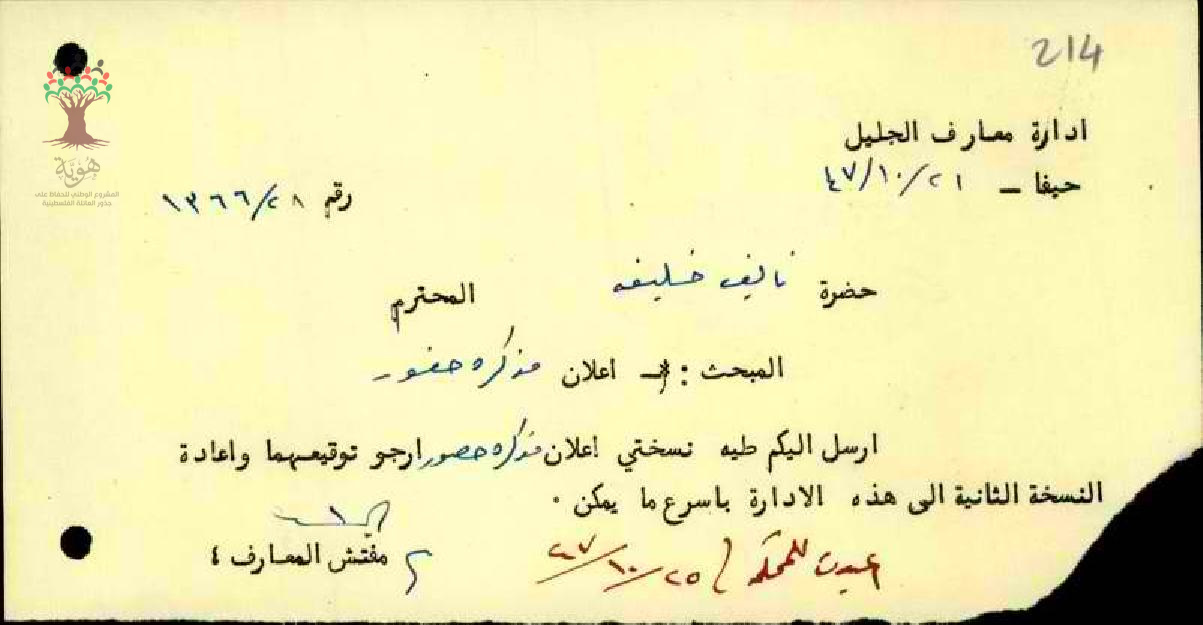 214
هُوِيَّة
المشروع الوطني للحفاظ على
جذور العائلة الفلسطينية
ادارة معارف الجليل
حيفا - ٤٧/١٠/٢١
رقم ١٣٦٦/٢٨
حضرة نايف خليفه المحترم
المبحث : - اعلان مذكره حضور
ارسل اليكم طيه نسختي اعلان مذكره حضور ارجو توقيعهما واعادة
النسخة الثانية الى هذه الادارة باسرع ما يمكن ٠
مفتش المعارف ٤
للمحكمة ٤٧/١٠/٢٥